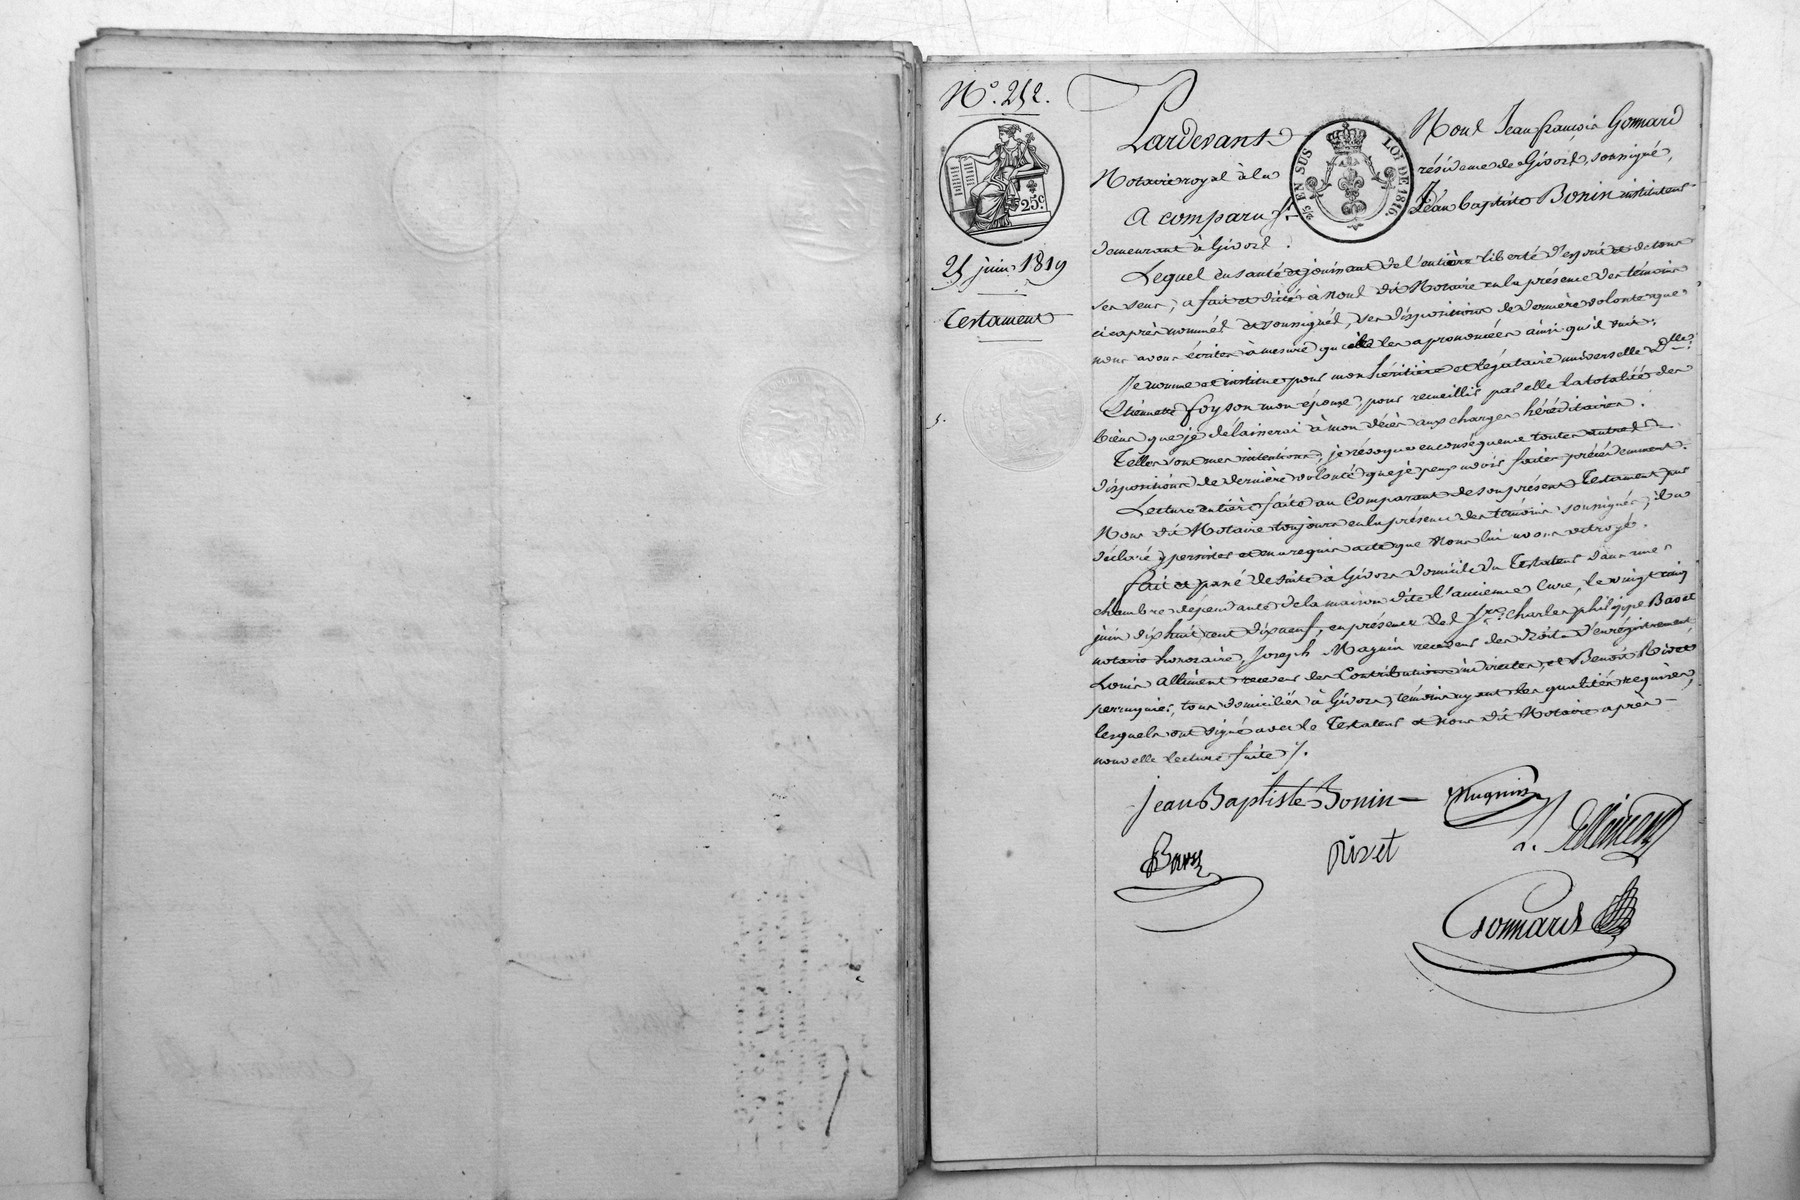 N.° 252.
25 juin 1819
Testament
25.c
2/5 EN SUS
LOI DE 1816.
Pardevant Nous Jean françois Gonnard
Notaire royal à la résidence de Givors, soussigné,
A comparu Sr. Jean baptiste Bonin instituteur
demeurant à Givors.
Lequel en santé et jouissant de l'entière liberté d'esprit et de tous
ses sens, a fait et dicté à Nous dit Notaire en la présence des témoins
ci après nommés et soussignés, ses dispositions de dernière volonté que
nous avons écrites à mesure qu'il les a prononcées ainsi qu'il suit:
Je nomme et institue pour mon héritière et légataire universelle Dlle.
Etiennette foyson mon épouse, pour recueillir par elle la totalité des
biens que je délaisserai à mon décès aux charges héréditaires.
Telles sont mes intentions, je révoque en conséquence toutes autres
dispositions de dernière volonté que je peux avoir faites précédemment.
Lecture entière faite au Comparant de son présent Testament par
Nous dit Notaire toujours en la présence des témoins soussignés, il a
déclaré y persister et en a requis acte que Nous lui avons octroyé.
fait et passé de suite à Givors domicile du Testateur dans une
chambre dépendante de la maison dite l'ancienne Cure, le vingt cinq
juin dix huit cent dix neuf, en présence de Srs. Charles philippe
notaire honoraire, Joseph Magnin receveur des droits d'enrégistrement
Louis Alliment receveur des Contributions indirectes, et Benoit Rivet
perruquier, tous domiciliés à Givors, témoins ayant les qualités requises,
lesquels ont signé avec le Testateur et Nous dit Notaire après
nouvelle lecture faite ./.
jean Baptiste Bonin
Magnin
L. Alliment
Rivet
Gonnard